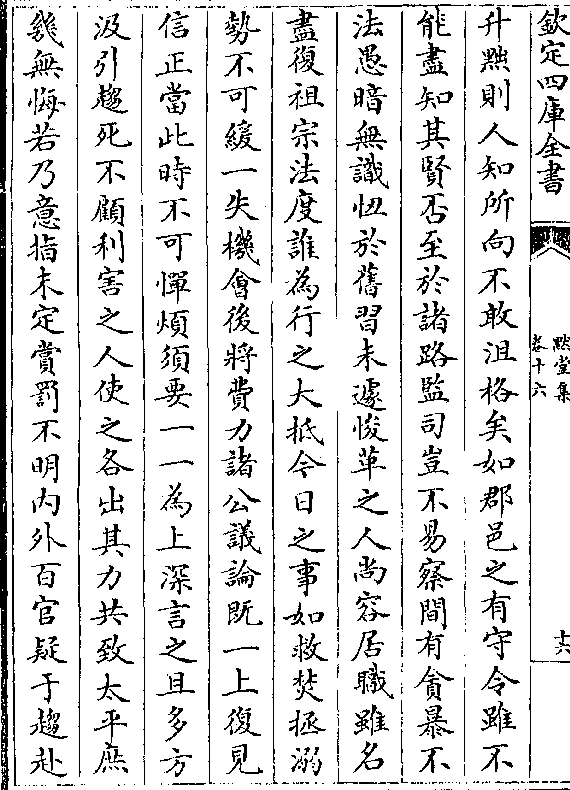 欽定四庫全書
默堂集
卷十六
十六
升黜則人知所向不敢沮格矣如郡邑之有守令雖不
能盡知其賢否至於諸路監司豈不易察間有貪暴不
法愚暗無識忸於舊習未遽悛革之人尚容居職雖名
盡復祖宗法度誰為行之大抵今日之事如救焚拯溺
勢不可緩一失機會後將費力諸公議論既一上復見
信正當此時不可憚煩須要一一為上深言之且多方
汲引趨死不顧利害之人使之各出其力共致太平庶
幾無悔若乃意指未定賞罰不明內外百官疑于趨赴